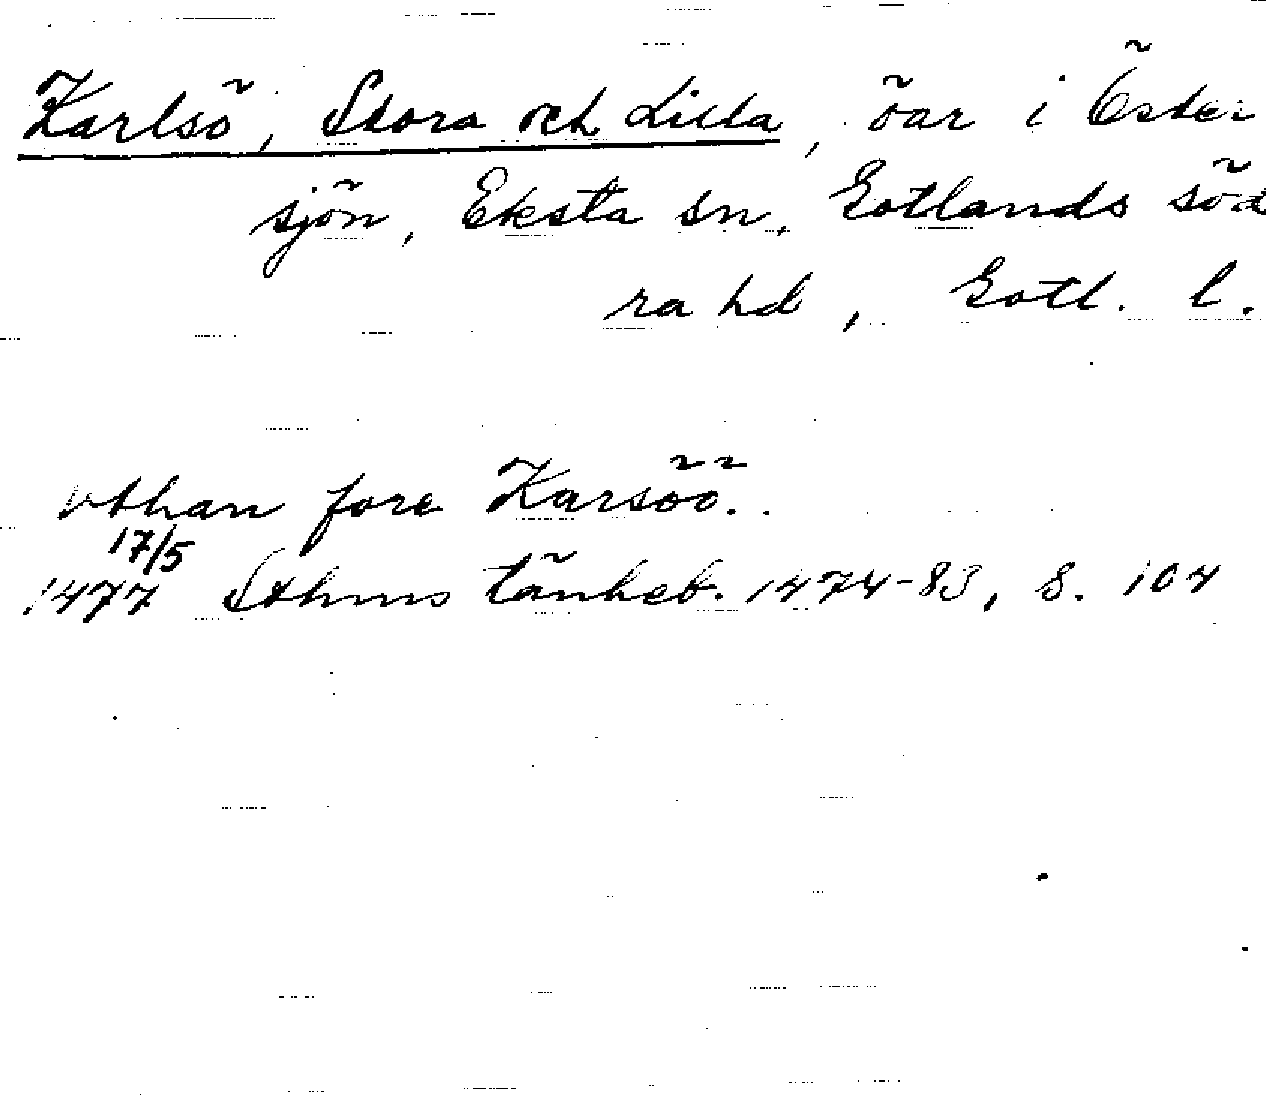 Karlsö, Stora och Lilla, öar i Öster
sjön, Eksta sn, Gotlands söd
ra hd, Gotl. l.
vthan fore Karsöö.
17/5
1477 Sthms tänkeb. 1474-83, s. 104